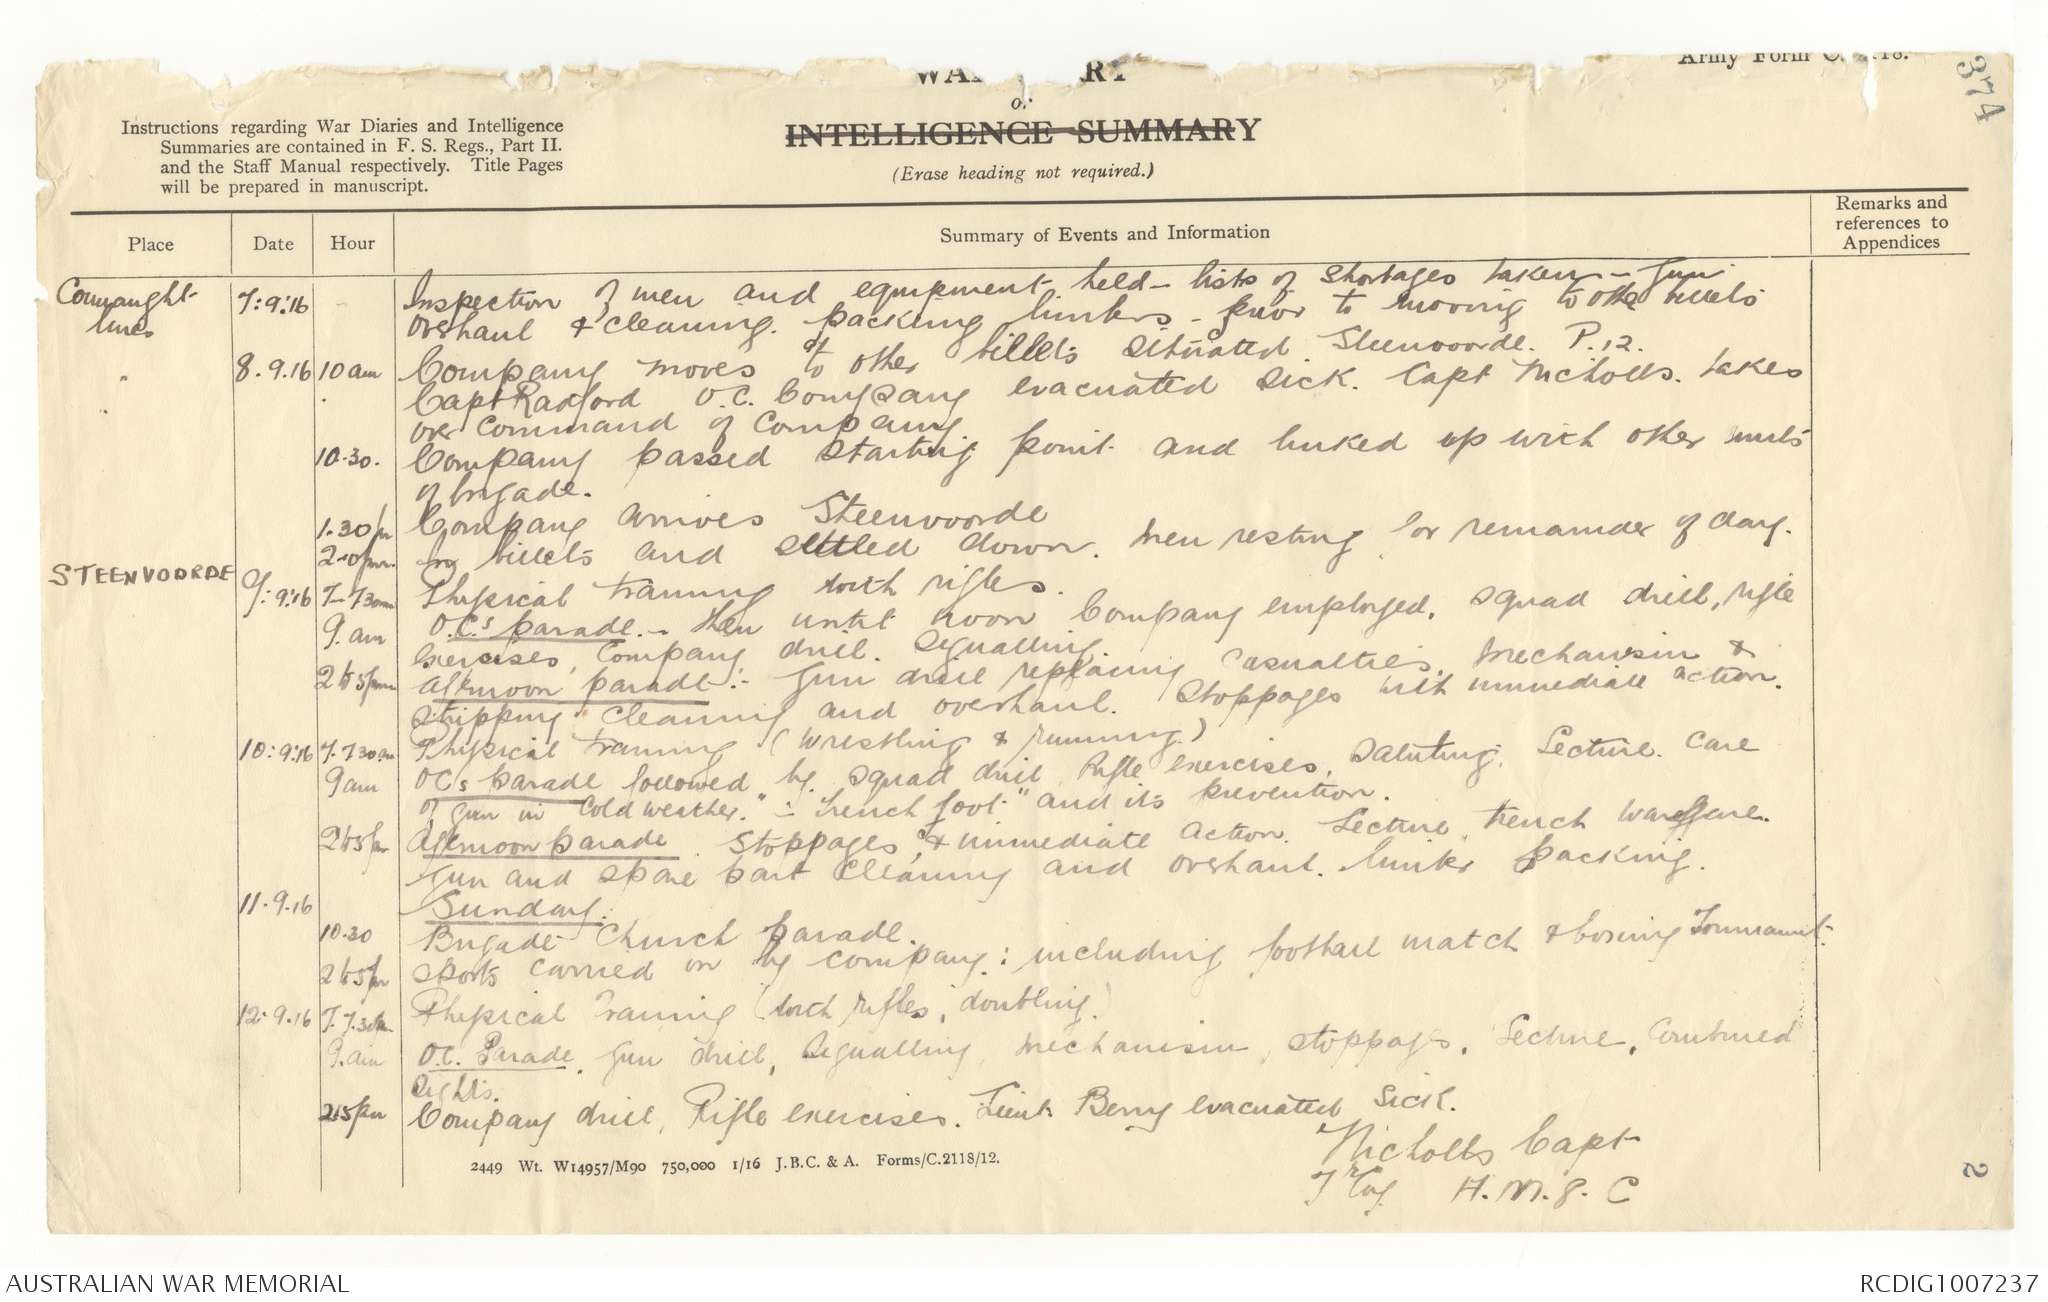 Army Form C. 2118.
374
WAR DIARY
or
INTELLIGENCE SUMMARY
(Erase heading not required.)
Instructions regarding War Diaries and Intelligence
Summaries are contained in F. S. Regs., Part II.
and the Staff Manual respectively. Title Pages
will be prepared in manuscript.
Place Date Hour Summary of Events and Information Remarks and references to Appendices
Connaught lines 7:9:16 - Inspection of men and equipment held - lists of shortages taken - Gun
overhaul & cleaning. packing limbers - prior to moving to other billets
" 8.9.16 10am Company moves to other billets situated Steenvoorde. P.12.
Capt Radford O.C. Company evacuated sick. Capt Nicholls. takes
over command of Company
10.30. Company passed starting point and linked up with other units
of brigade.
1.30pm Company arrives Steenvoorde
2.0pm In billets and settled down. Men resting for remainder of day.
STEENVOORDE 9:9:16 7-7.30am Physical training with rifles.
9.am O.C.s parade. - then until noon Company employed, squad drill, rifle
exercises, Company drill. Signalling.
2 to 5pm Afternoon parade :- Gun drill replacing casualties, mechanism &
stripping cleaning and overhaul. Stoppages with immediate action.
10:9:16 7.7.30am Physical training (wrestling & running)
9am OCs parade followed by squad drill Rifle exercises, Saluting. Lecture. Care
of gun in cold weather." :- "trench foot" and its prevention.
2 to 5pm Afternoon parade. Stoppages & immediate action. Lecture, trench warfare.
Gun and spare part cleaning and overhaul. limber packing.
11.9.16 Sunday.
10.30 Brigade Church parade.
2 to 5pm Sports carried on by company: including football match & boxing Tournament.
12.9.16 7.7.30am Physical Training (with rifles, doubling)
9.am O.C. Parade. Gun drill, Signalling, mechanism, stoppages, Lecture, Combined
Sights.
2 to 5pm Company drill, Rifle exercises. Lieut Berry evacuated sick.
Nicholls Capt
M. G. C
2449 Wt. W14957/M90 750,000 1/16 J.B.C. & A. Forms/C.2118/12.
2
AUSTRALIAN WAR MEMORIAL
RCDIG1007237